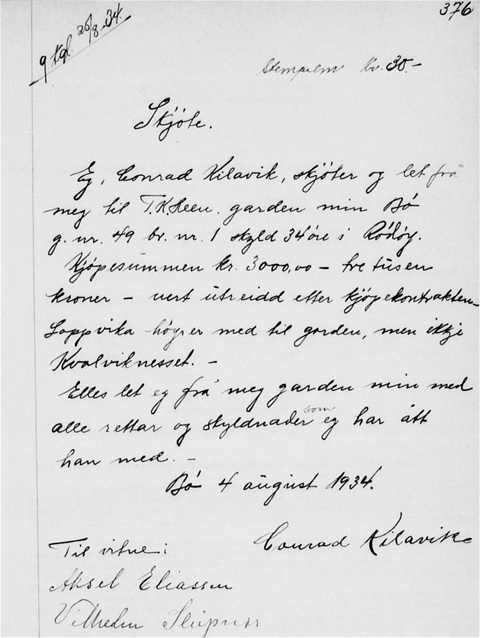 376
9 tgl. 25/8-34.
Stempelm Kr. 30.-
Skjöte.
Eg, Conrad Kilavik, skjöter og let frå
meg til T.K. Steen garden min Bö
g. nr. 49 br. nr. 1 skyld 34 öre i Rödöy.
Kjöpesummen kr. 3000,00 - tre tusen
kroner - vert utreidd etter kjöpekontrakten.
Loppvika höyrer med til garden, men ikkje
Kvalviknesset. -
Elles let eg frå meg garden min med
alle rettar og skyldnader som eg har ått
han med. -
Bö 4 august 1934.
Conrad Kilavik
Til vitne:
Aksel Eliassen
Vilhelm